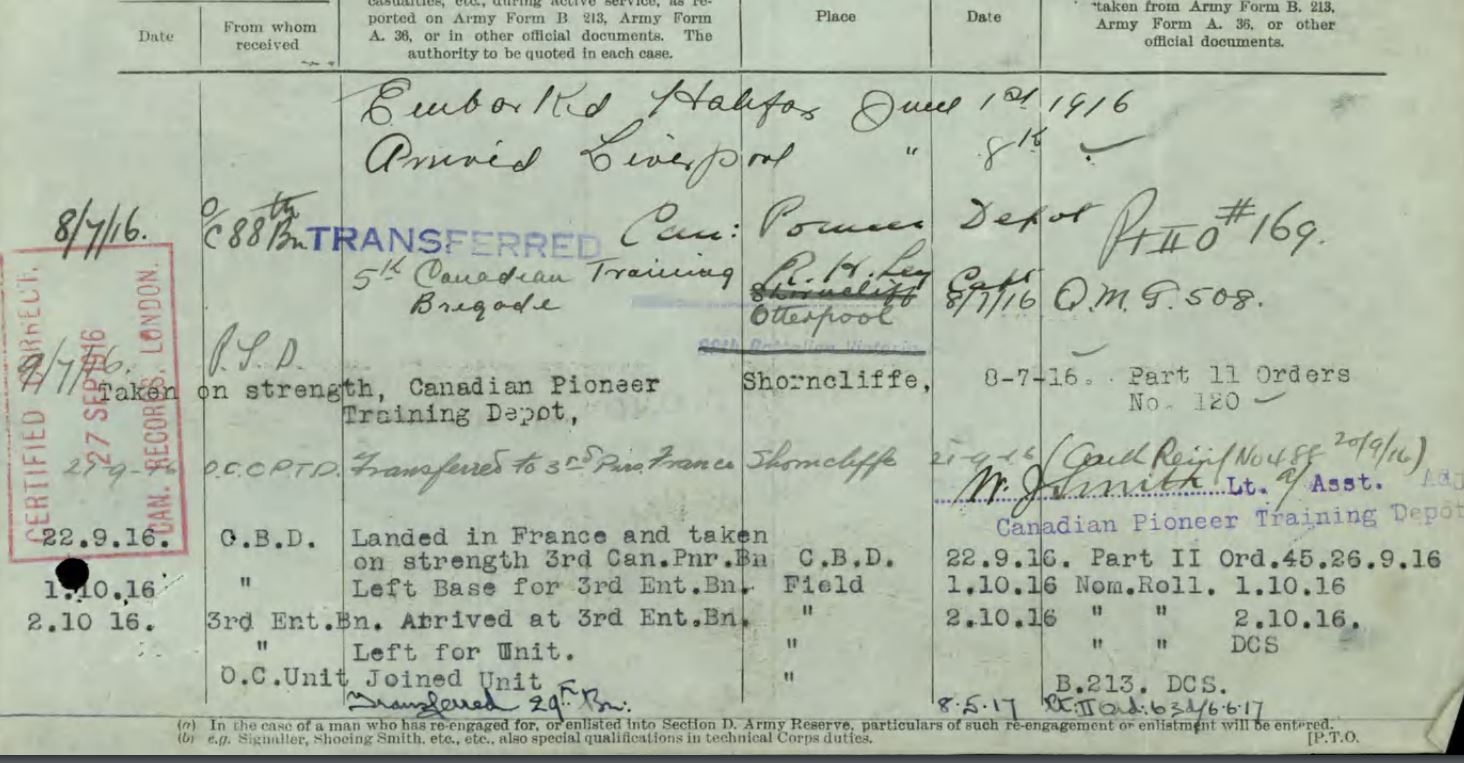 casualties, etc., during active service, as re-
ported on Army Form B. 213, Army Form
A. 36, or in other official documents. The
authority to be quoted in each case.
Date
From whom
received
Place
Date
taken from Army Form B. 213,
Army Form A. 36, or other
official documents.
Embarked Halifax June 1st 1916
Arrived Liverpool " 8th
8/7/16. O/C 88th Bn. TRANSFERRED Can: Pioneer Depot Pt II O #169.
5th Canadian Training Shorncliff 8/7/16 Q.M.G. 508.
Brigade Otterpool
Capt
9/7/16.
Taken on strength, Canadian Pioneer Shorncliffe, 8-7-16. Part 11 Orders
Training Depot, No. 120
O.C.C.P.T.D. Transferred to 3rd Pnrs. France Shorncliffe (Auth Reinf No 488 20/9/16)
W. J. Smith Lt. a/ Asst. Adj
Canadian Pioneer Training Depot
CERTIFIED CORRECT.
27 SEP 1916
CAN. RECORDS, LONDON.
22.9.16. C.B.D. Landed in France and taken
on strength 3rd Can.Pnr.Bn C.B.D. 22.9.16. Part II Ord.45.26.9.16
1.10.16 " Left Base for 3rd Ent.Bn. Field 1.10.16 Nom.Roll. 1.10.16
2.10 16. 3rd Ent.Bn. Arrived at 3rd Ent.Bn. " 2.10.16 " " 2.10.16.
" Left for Unit. " " " DCS
O.C.Unit Joined Unit " B.213. DCS.
Transferred 29th Bn. 8.5.17
(a) In the case of a man who has re-engaged for, or enlisted into Section D. Army Reserve, particulars of such re-engagement or enlistment will be entered.
(b) e.g. Signaller, Shoeing Smith, etc., etc., also special qualifications in technical Corps duties. [P.T.O.